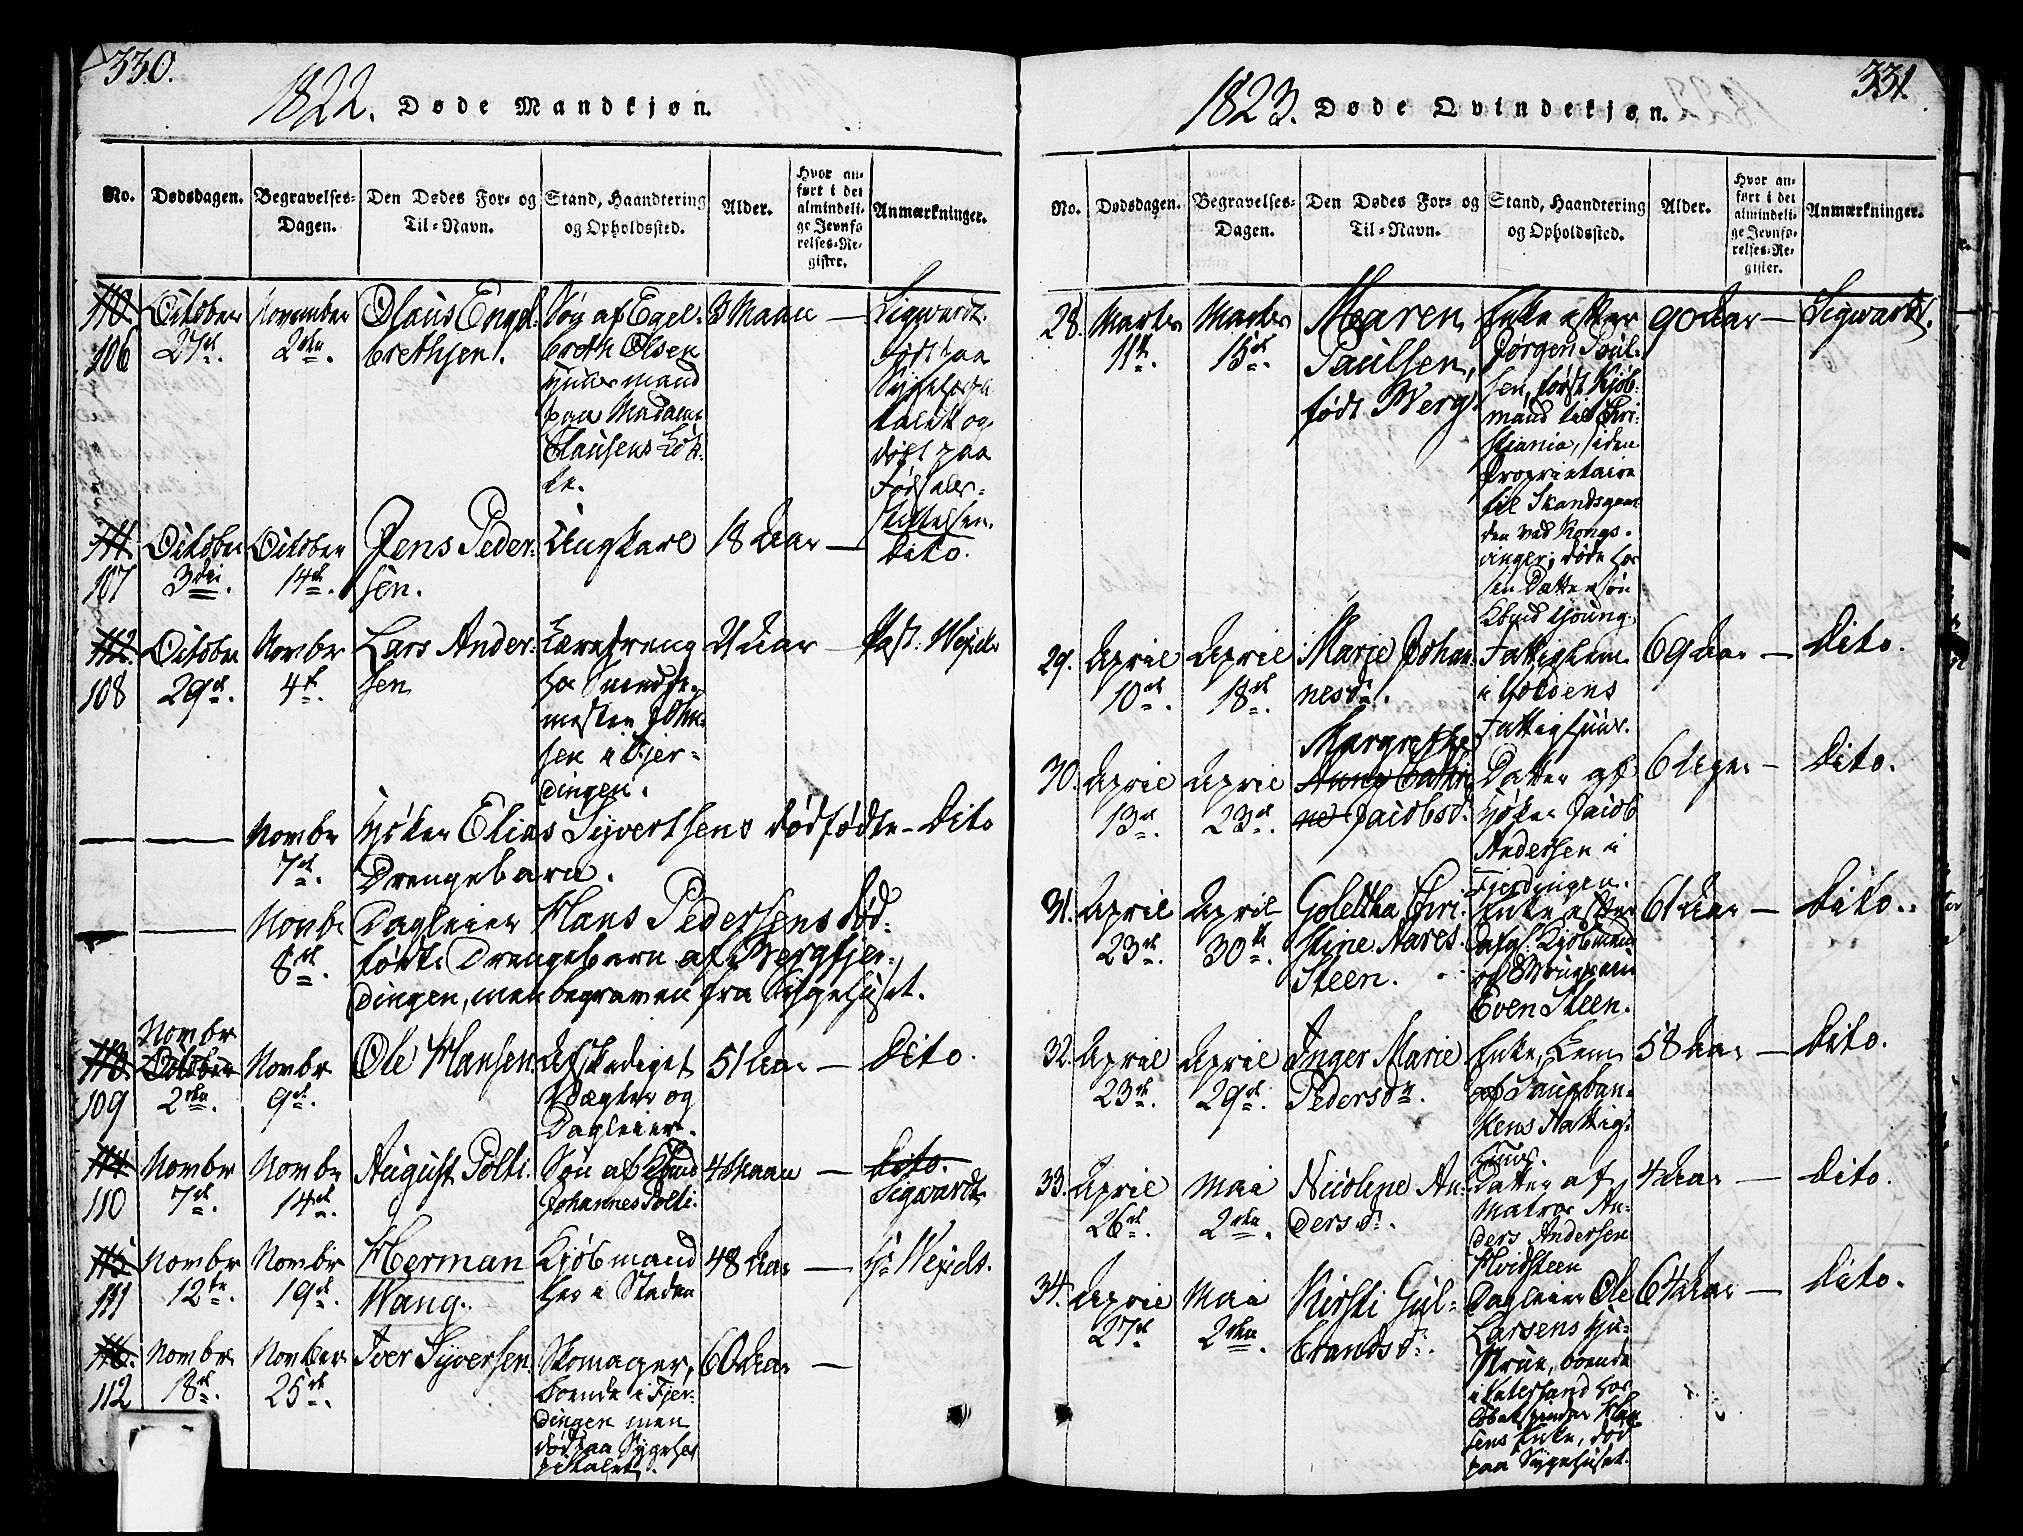 330.
1822. Døde Mandkjøn.
No.
Dødsdagen.
Begravelses-
Dagen.
Den Dødes For- og
Til-Navn.
Stand, Haandtering
og Opholdssted.
Alder.
Hvor an-
ført i det
almindeli-
ge Jevnfø-
relses-Re-
gister.
Anmærkninger.
110.
106
October
27de.
November
2den.
Olaus Engel-
brethsen.
Søn af Egel-
breth Olsen
Huusmand
paa Madame
Clausens Løk-
ke.
3 Maan
—
Sigwardt.
Født paa
og
døbt paa
Fødsels-
stiftelsen.
111.
107
October
3die.
October
14de.
Jens Peder-
sen.
Ungkarl
18 Aar
—
Dito.
112.
108
October
29de.
Novmbr
4de.
Lars Ander-
sen
Læredreng
hos Smedde-
mester John-
sen i Fjer-
dingen.
21 Aar
—
Past: Wexels
Novmbr
7de.
Høker Elias Syvertsens dødfødte - Dito
Drengebarn.
Novmbr
8de.
Dagleier Hans Pedersens død-
født Drengebarn af Bergfjer-
dingen, men begraven fra Sygehuset.
113.
109
Novmbr
October
2den.
Novmbr
9de.
Ole Hansen.
Afskediget
Vægter og
Dagleier.
51 Aar
—
Dito.
114.
110
Novmbr
7de.
Novmbr
14de.
August Polti.
Søn af Kbmd
Johannes Polti.
4 Maan
—
Dito.
Sigwardt
115.
111
Novmbr
12te.
Novmbr
19de.
Herman
Wang.
Kjøbmand
her i Staden
48 Aar
—
Hr Wexels.
116.
112
Novmbr
18de.
Novmber
25de.
Iver Syversen.
Skomager,
boende i Fjer-
dingen men
død paa Sygehos-
pitalet.
60 Aar
—
331.
1823. Døde Qvindekjøn.
No.
Dødsdagen.
Begravelses-
Dagen.
Den Dødes For- og
Til-Navn.
Stand, Haandtering
og Opholdssted.
Alder.
Hvor an-
ført i det
almindeli-
ge Jevnfø-
relses-Re-
gister.
Anmærkninger.
28.
Marts
11te.
Marts
15de.
Maren
Paulsen,
født Berg
Enke efter
Jørgen Poul-
sen, først Kjøb-
mand til Chri-
stiania, siden
Proprietaire
til Skandsgaar
den ved Kongs-
vinger; døde hos
sin Dattersøn
Kbmd Young.
90 Aar
—
Sigwardt.
29.
April
10de.
April
18de.
Marie Johan-
nesdr.
Fattiglem
i
Fattighuus.
69 Aar
—
Dito.
30.
April
13de.
April
23de.
Margrethe
Anne Cathri
ne Jacobsdr.
Datter af
Høker Jacob
Andersen i
Fjerdingen.
6 Uger
—
Dito.
31.
April
23de.
April
30te.
Goletha Chri-
stine Aares-
Steen.
Enke efter
Afg: Kjøbmand
og
Even Steen.
61 Aar
—
Dito.
32.
April
23de.
April
29de.
Inger Marie
Pedersdr.
Enke, Lem
af Saugban-
kens Fattig-
huus.
58 Aar
—
Dito.
33.
April
26de.
Mai
2den.
Nicoline An-
dersdr.
Datter af
Matros An-
ders Andersen
Hvidsteen
4 Aar
—
Dito.
34.
April
27de.
Mai
2den.
Kirsti Gul-
brandsdr.
Dagleier Ole
Larsens Hu-
strue, boende
i Vaterland hos
Han
sens Enke, død
paa Sygehuset.
64 Aar
—
Dito.